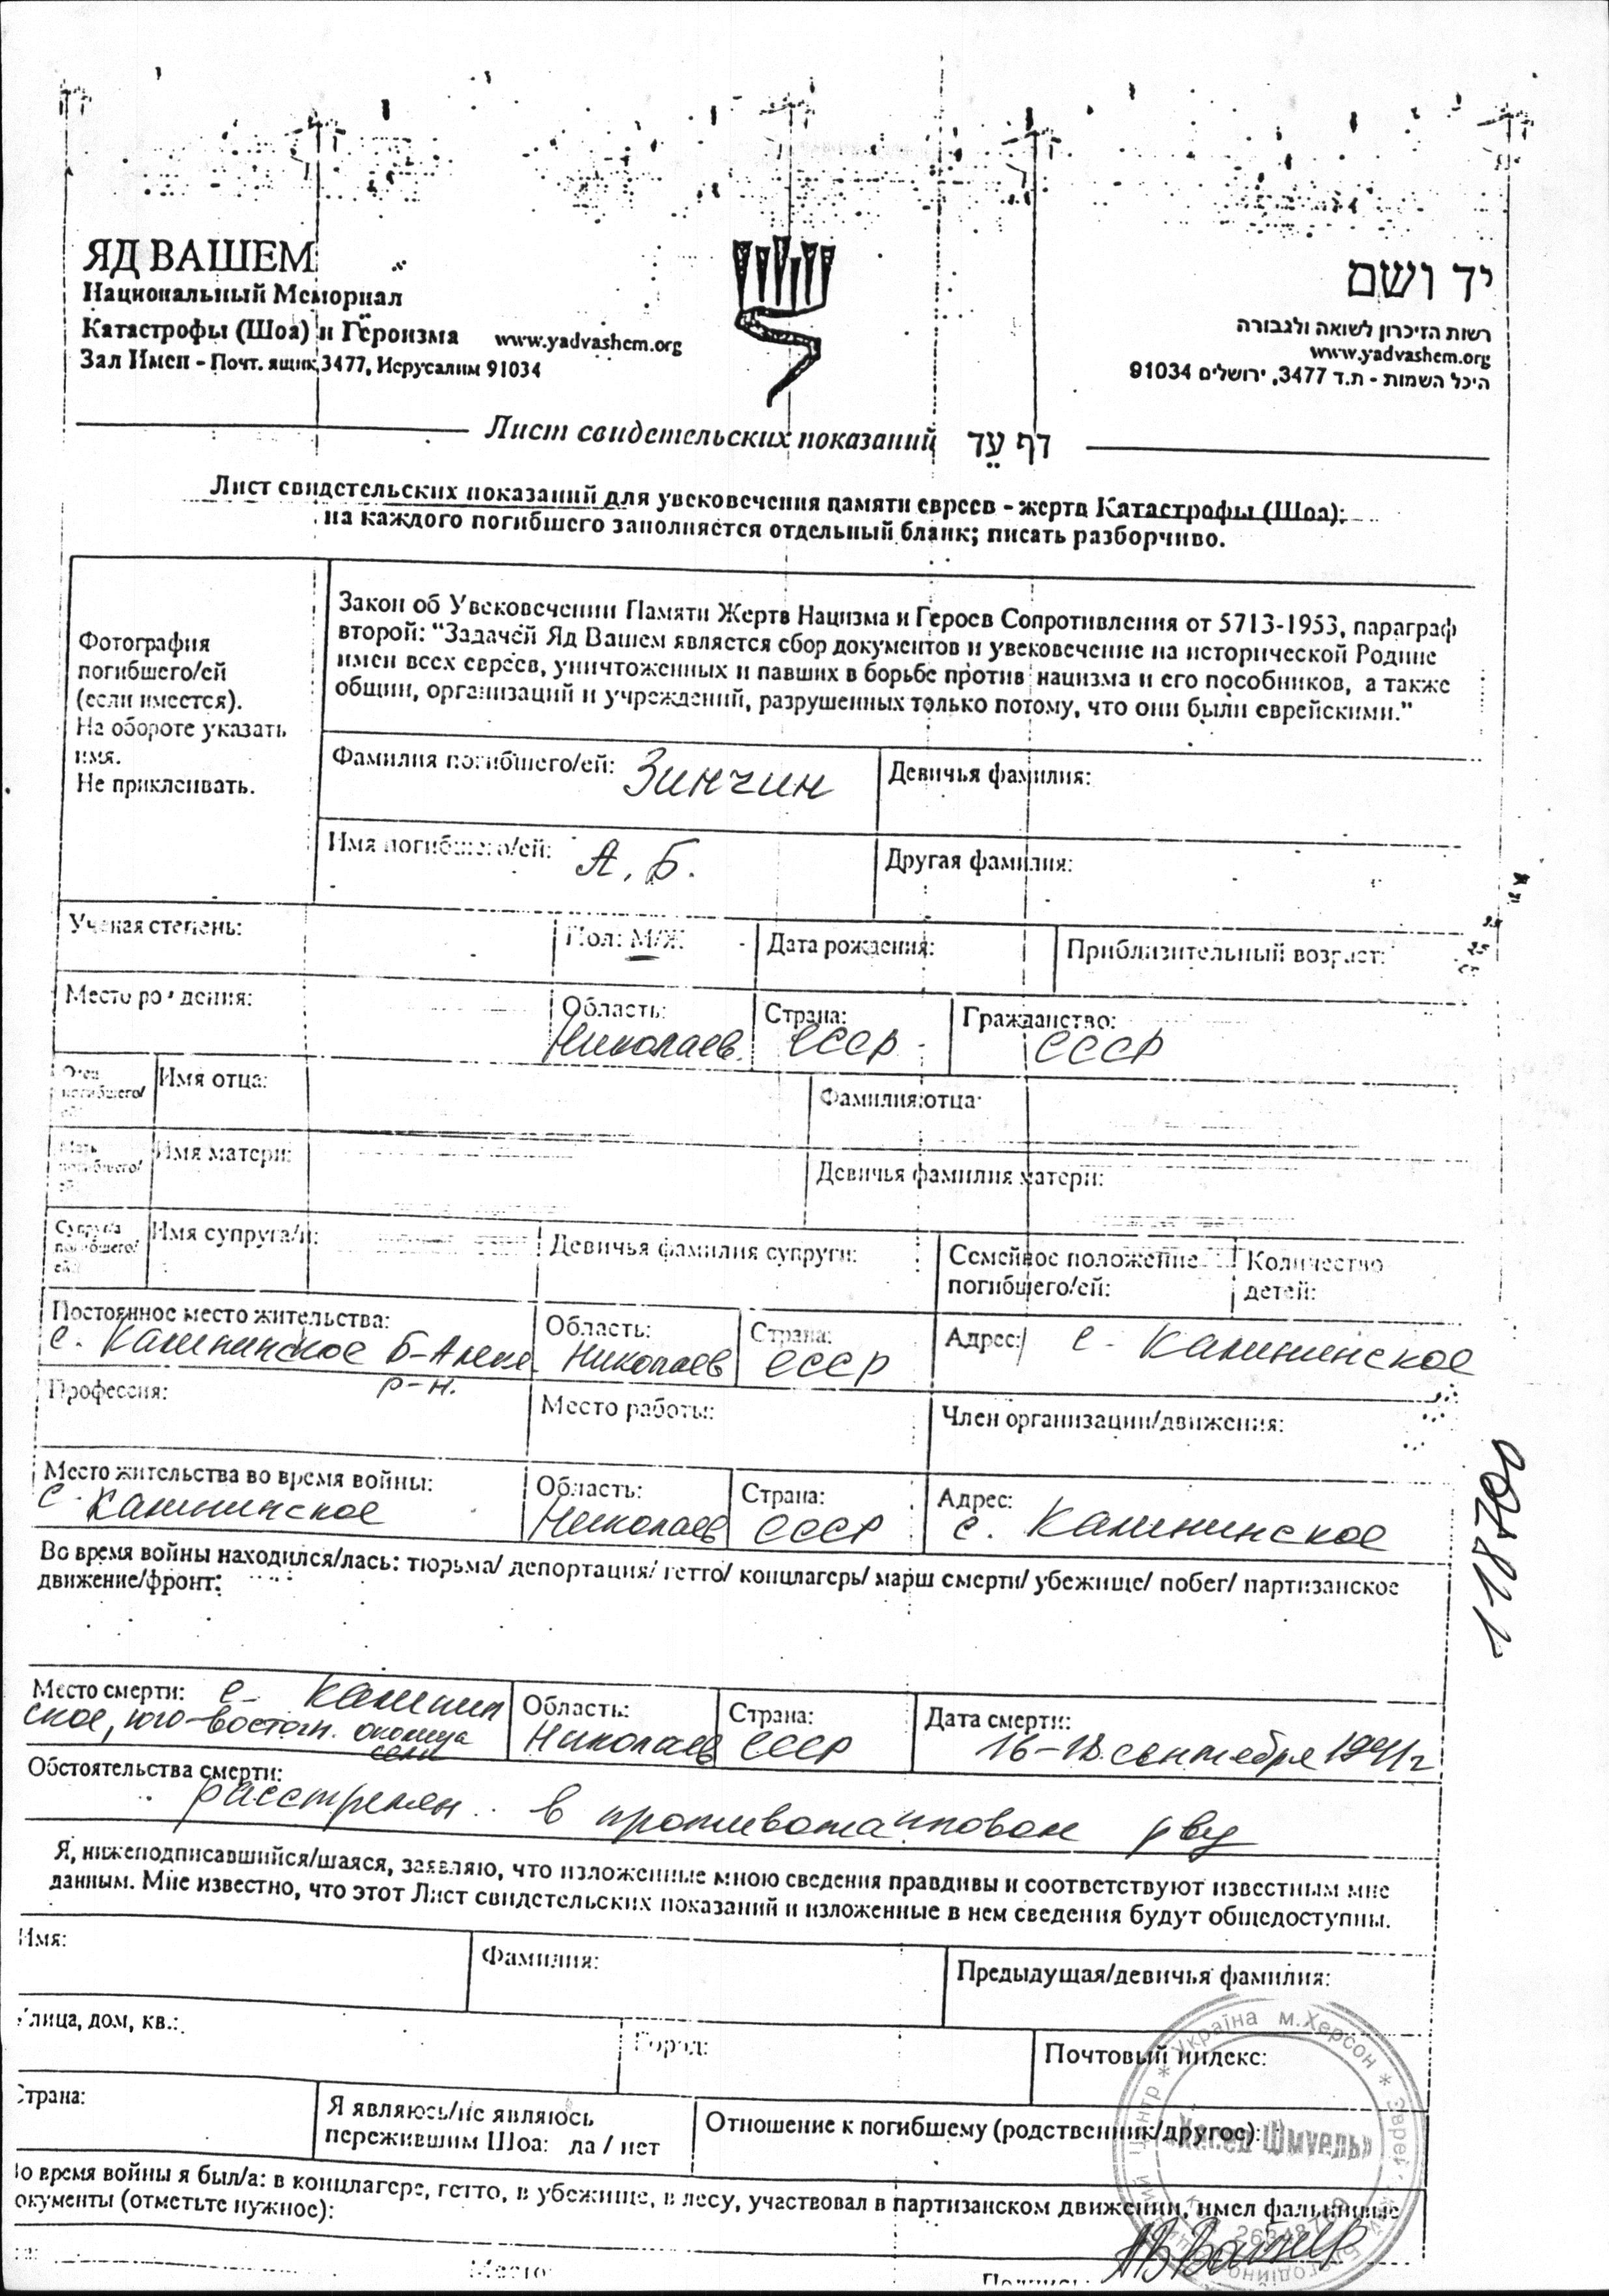 ЯД ВАШЕМ
Национальный Мемориал
Катастрофы (Шоа) и Героизма www.yadvashem.org
Зал Имен - Почт. ящик 3477, Иерусалим 91034
יד ושם
רשות הזיכרון לשואה ולגבורה
www.yadvashem.org
היכל השמות - ת.ד 3477, ירושלים 91034
Лист свидетельских показаний דף עֵד
Лист свидетельских показаний для увековечения памяти евреев - жертв Катастрофы (Шоа);
на каждого погибшего заполняется отдельный бланк; писать разборчиво.
Фотография
погибшего/ей
(если имеется).
На обороте указать
имя.
Не приклеивать.
Закон об Увековечении Памяти Жертв Нацизма и Героев Сопротивления от 5713-1953, параграф
второй: "Задачей Яд Вашем является сбор документов и увековечение на исторической Родине
имен всех евреев, уничтоженных и павших в борьбе против нацизма и его пособников, а также
общин, организаций и учреждений, разрушенных только потому, что они были еврейскими."
Фамилия погибшего/ей: Зинчин
Девичья фамилия:
Имя погибшего/ей: А. Б.
Другая фамилия:
Ученая степень:
Пол: М/Ж
Дата рождения:
Приблизительный возраст:
Место рождения:
Область: Николаев.
Страна: СССР
Гражданство: СССР
Отец погибшего/ей
Имя отца:
Фамилия отца:
Мать погибшего/ей
Имя матери:
Девичья фамилия матери:
Супруг/а погибшего/ей
Имя супруга/и:
Девичья фамилия супруги:
Семейное положение погибшего/ей:
Количество детей:
Постоянное место жительства: с. Калининское р-н.
Область: Николаев
Страна: СССР
Адрес: с. Калининское
Профессия:
Место работы:
Член организации/движения:
Место жительства во время войны: с. Калининское
Область: Николаев
Страна: СССР
Адрес: с. Калининское
Во время войны находился/лась: тюрьма/ депортация/ гетто/ концлагерь/ марш смерти/ убежище/ побег/ партизанское
движение/фронт:
Место смерти: с. Калинин
ское, юго-восточн. околица
села
Область: Николаев
Страна: СССР
Дата смерти: 16-18 сентября 1941г
Обстоятельства смерти:
расстрелян в противотанковом рву
Я, нижеподписавшийся/шаяся, заявляю, что изложенные мною сведения правдивы и соответствуют известным мне
данным. Мне известно, что этот Лист свидетельских показаний и изложенные в нем сведения будут общедоступны.
Имя:
Фамилия:
Предыдущая/девичья фамилия:
лица, дом, кв.:
Город:
Почтовый индекс:
Страна:
Я являюсь/не являюсь
пережившим Шоа: да / нет
Отношение к погибшему (родственник/другое):
во время войны я был/а: в концлагере, гетто, в убежище, в лесу, участвовал в партизанском движении, имел фальшивые
окументы (отметьте нужное):
Место:
Подпись:
118700
Україна м.Херсон * Єврейський
центр *
«Хесед Шмуель»